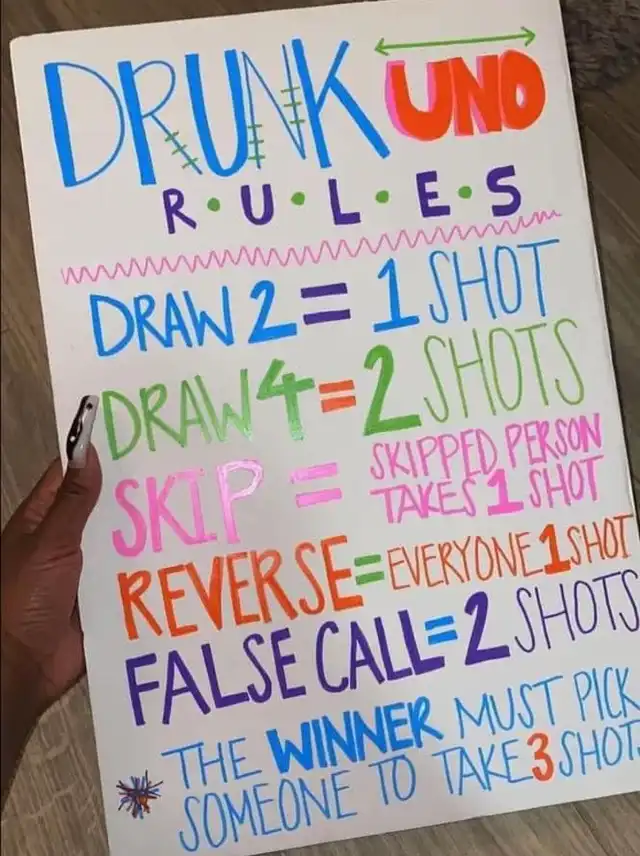 DRUNK UNO
R·U·L·E·S
DRAW 2 = 1 SHOT
DRAW 4 = 2 SHOTS
SKIP = SKIPPED PERSON
TAKES 1 SHOT
REVERSE = EVERYONE 1 SHOT
FALSE CALL = 2 SHOTS
THE WINNER MUST PICK
SOMEONE TO TAKE 3 SHOT